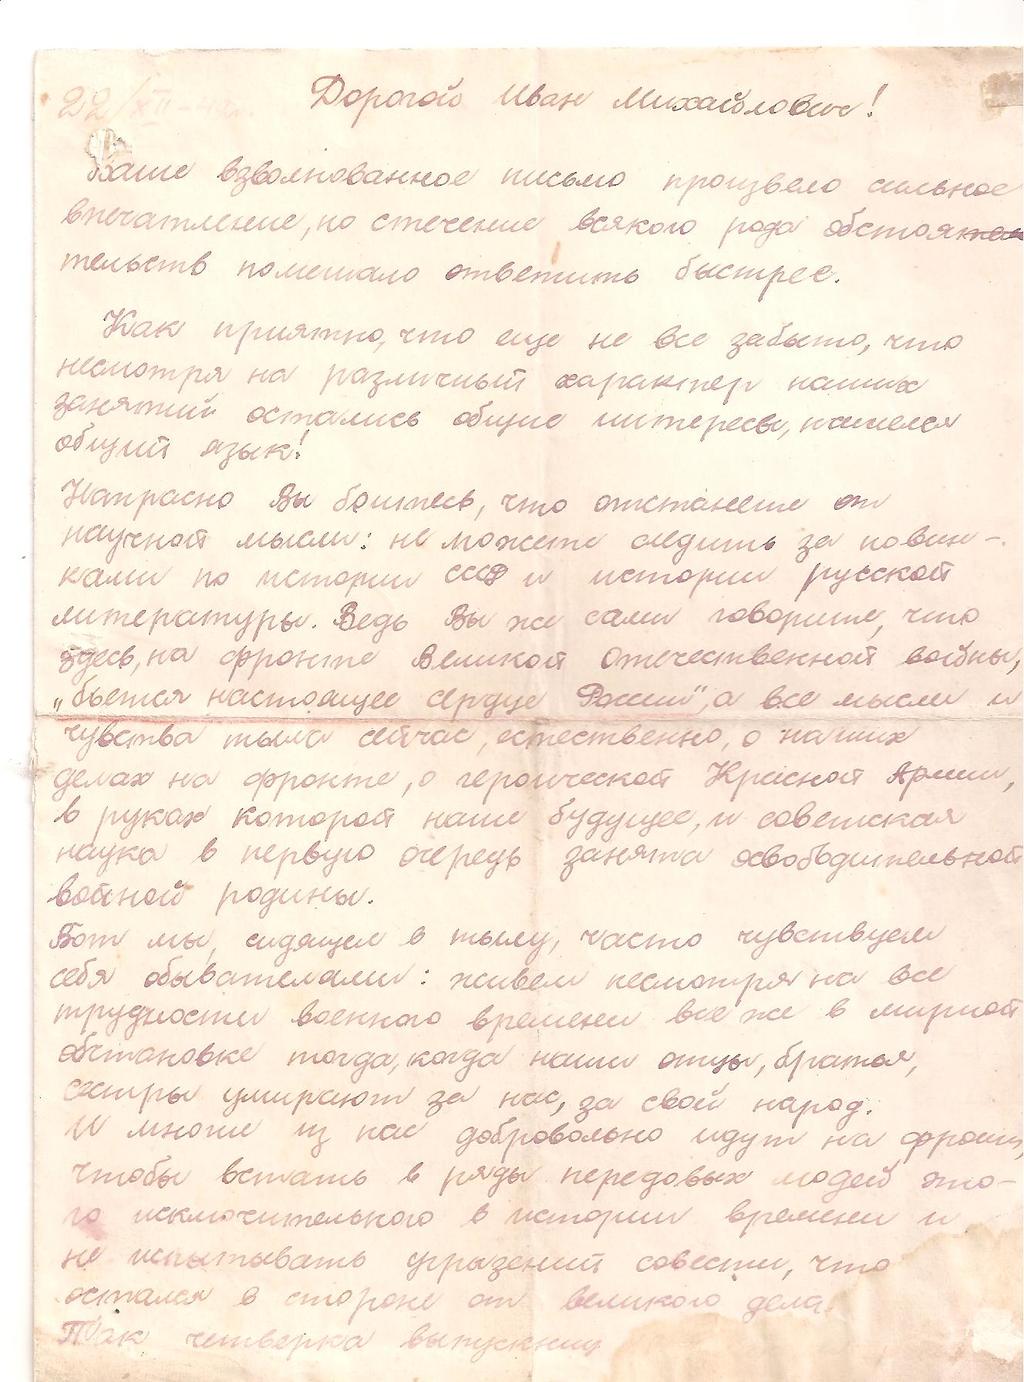 22/XII-42 г.
Дорогой Иван Михайлович!
Ваше взволнованное письмо произвело сильное
впечатление, но стечение всякого рода обстоя
тельств помешало ответить быстрее.
Как приятно, что еще не все забыто, что
несмотря на различный характер наших
занятий остались общие интересы, нашелся
общий язык!
Напрасно Вы боитесь, что отстанете от
научной мысли: не можете следить за новин-
ками по истории СССР и истории русской
литературы. Ведь Вы же сами говорите, что
здесь, на фронте Великой Отечественной войны,
„бьется настоящее сердце России", а все мысли и
чувства тыла сейчас, естественно, о наших
делах на фронте, о героической Красной Армии,
в руках которой наше будущее, и советская
наука в первую очередь занята освободительной
войной родины.
Вот мы, сидящие в тылу, часто чувствуем
себя обывателями: живем несмотря на все
трудности военного времени все же в мирной
обстановке тогда, когда наши отцы, братья,
сестры умирают за нас, за свой народ.
И многие из нас добровольно идут на фронт,
чтобы встать в ряды передовых людей это-
го исключительного в истории времени и
не испытывать угрызений совести, что
остался в стороне от великого дела.
Так четверка выпускниц